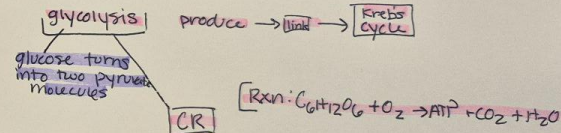 glycolysis
produce → link → Krebs cycle
glucose turns
into two pyruvate
molecules
CR
[Rxn: C6H12O6 + O2 → ATP + CO2 + H2O